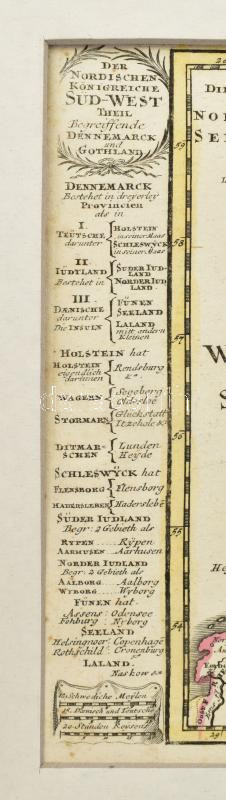 DER
NORDISCHEN
KÖNIGREICHE
SÜD-WEST
THEIL
Begreiffende
DENNEMARCK
und
GOTHLAND
DENNEMARCK
Bestehet in dreyerley
Provincien
als in
I.
TEÜTSCHE darunter
HOLSTEIN
in seiner Maas
SCHLESWŸCK
in seiner Maas
II
IÜDTLAND
Bestehet in
SUDER IUD-
LAND
NORDER IUD
LAND
III
DÆNISCHE
darunter
Die INSULN
FÜNEN
SEELAND
LALAND
mitt andern
Kleinen
HOLSTEIN hat
HOLSTEIN
eigendlich
darinnen
Rendsburg
&c
WAGERN
Segeberg
Oldesloë
STORMARN
Glückstatt
Itzehole &c
DITMAR-
SCHEN
Lunden
Heyde
SCHLESWŸCK hat
FLENSBORG
Flensborg
HADERSLEBEN
Haderslebë
SÜDER IUDLAND
Begr: 2 Gebieth als
RYPEN Rÿpen
AARHUSEN Aarhusen
NORDER IUDLAND
Begr: 2 Gebieth als
AALBORG Aalborg
WYBORG Wyborg
FÜNEN hat
Assens Odensee
Fohburg Nyborg
SEELAND
Helsingnoer Copenhagë
Rothschild Cronenburg
LALAND.
Naskow &c
12 Schwedische Meylen
15 Dænisch und Teutsche
20 Stunden Reysens
DI
NO
SE
59
58
57
W
S
56
55
He
54
29